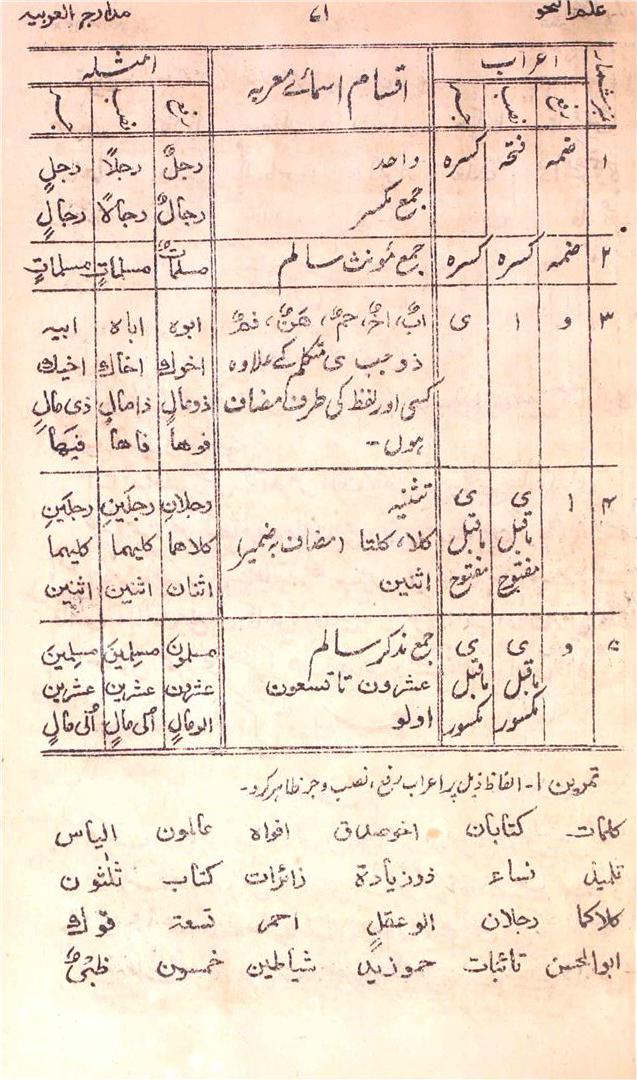 علم النحو ۷۱ مدارج العربیہ
نمبر شمار اعراب اقسام اسمائے معربہ امثلہ
رفع نصب جر رفع نصب جر
۱ ضمہ فتحہ کسرہ واحد رجلٌ رجلاً رجلٍ
جمع مکسر رجالٌ رجالاً رجالٍ
۲ ضمہ کسرہ کسرہ جمع مونث سالم مسلماتٌ مسلماتٍ مسلماتٍ
۳ و ا ی ابٌ، اخٌ، حمٌ، ھَنٌ، فمٌ ابوہ اباہ ابیہ
ذو جب ی متکلم کے علاوہ اخوك اخاك اخیك
کسی اور لفظ کی طرف مضاف ذومالٍ ذامالٍ ذی مالٍ
ہوں۔ فوھا فاھا فیھا
۴ ا ی ی تثنیہ رجلانِ رجلَینِ رجلَینِ
ماقبل ماقبل کلا، کلتا (مضاف بہ ضمیر) کلاھما کلیھما کلیھما
مفتوح مفتوح اثنین اثنان اثنین اثنین
۵ و ی ی جمع مذکر سالم مسلمون مسلِمینَ مسلِمینَ
ماقبل ماقبل عشرون تا تسعون عشرون عشرین عشرین
مکسور مکسور اولو الومالٍ اُلی مالٍ اُلی مالٍ
تمرین ۱۔ الفاظ ذیل پر اعراب رفع، نصب و جر ظاہر کرو۔
کلمات کتابان اخوصدق افواہ عالمون الیاس
تلمیذ نساء ذوزیادۃ زائرات کتاب ثلٰثون
کلاکما رجلان الوعقلٍ احمر تسعۃ فوك
ابوالحسن تائبات حموزید شیاطین خمسون ظبیٌ